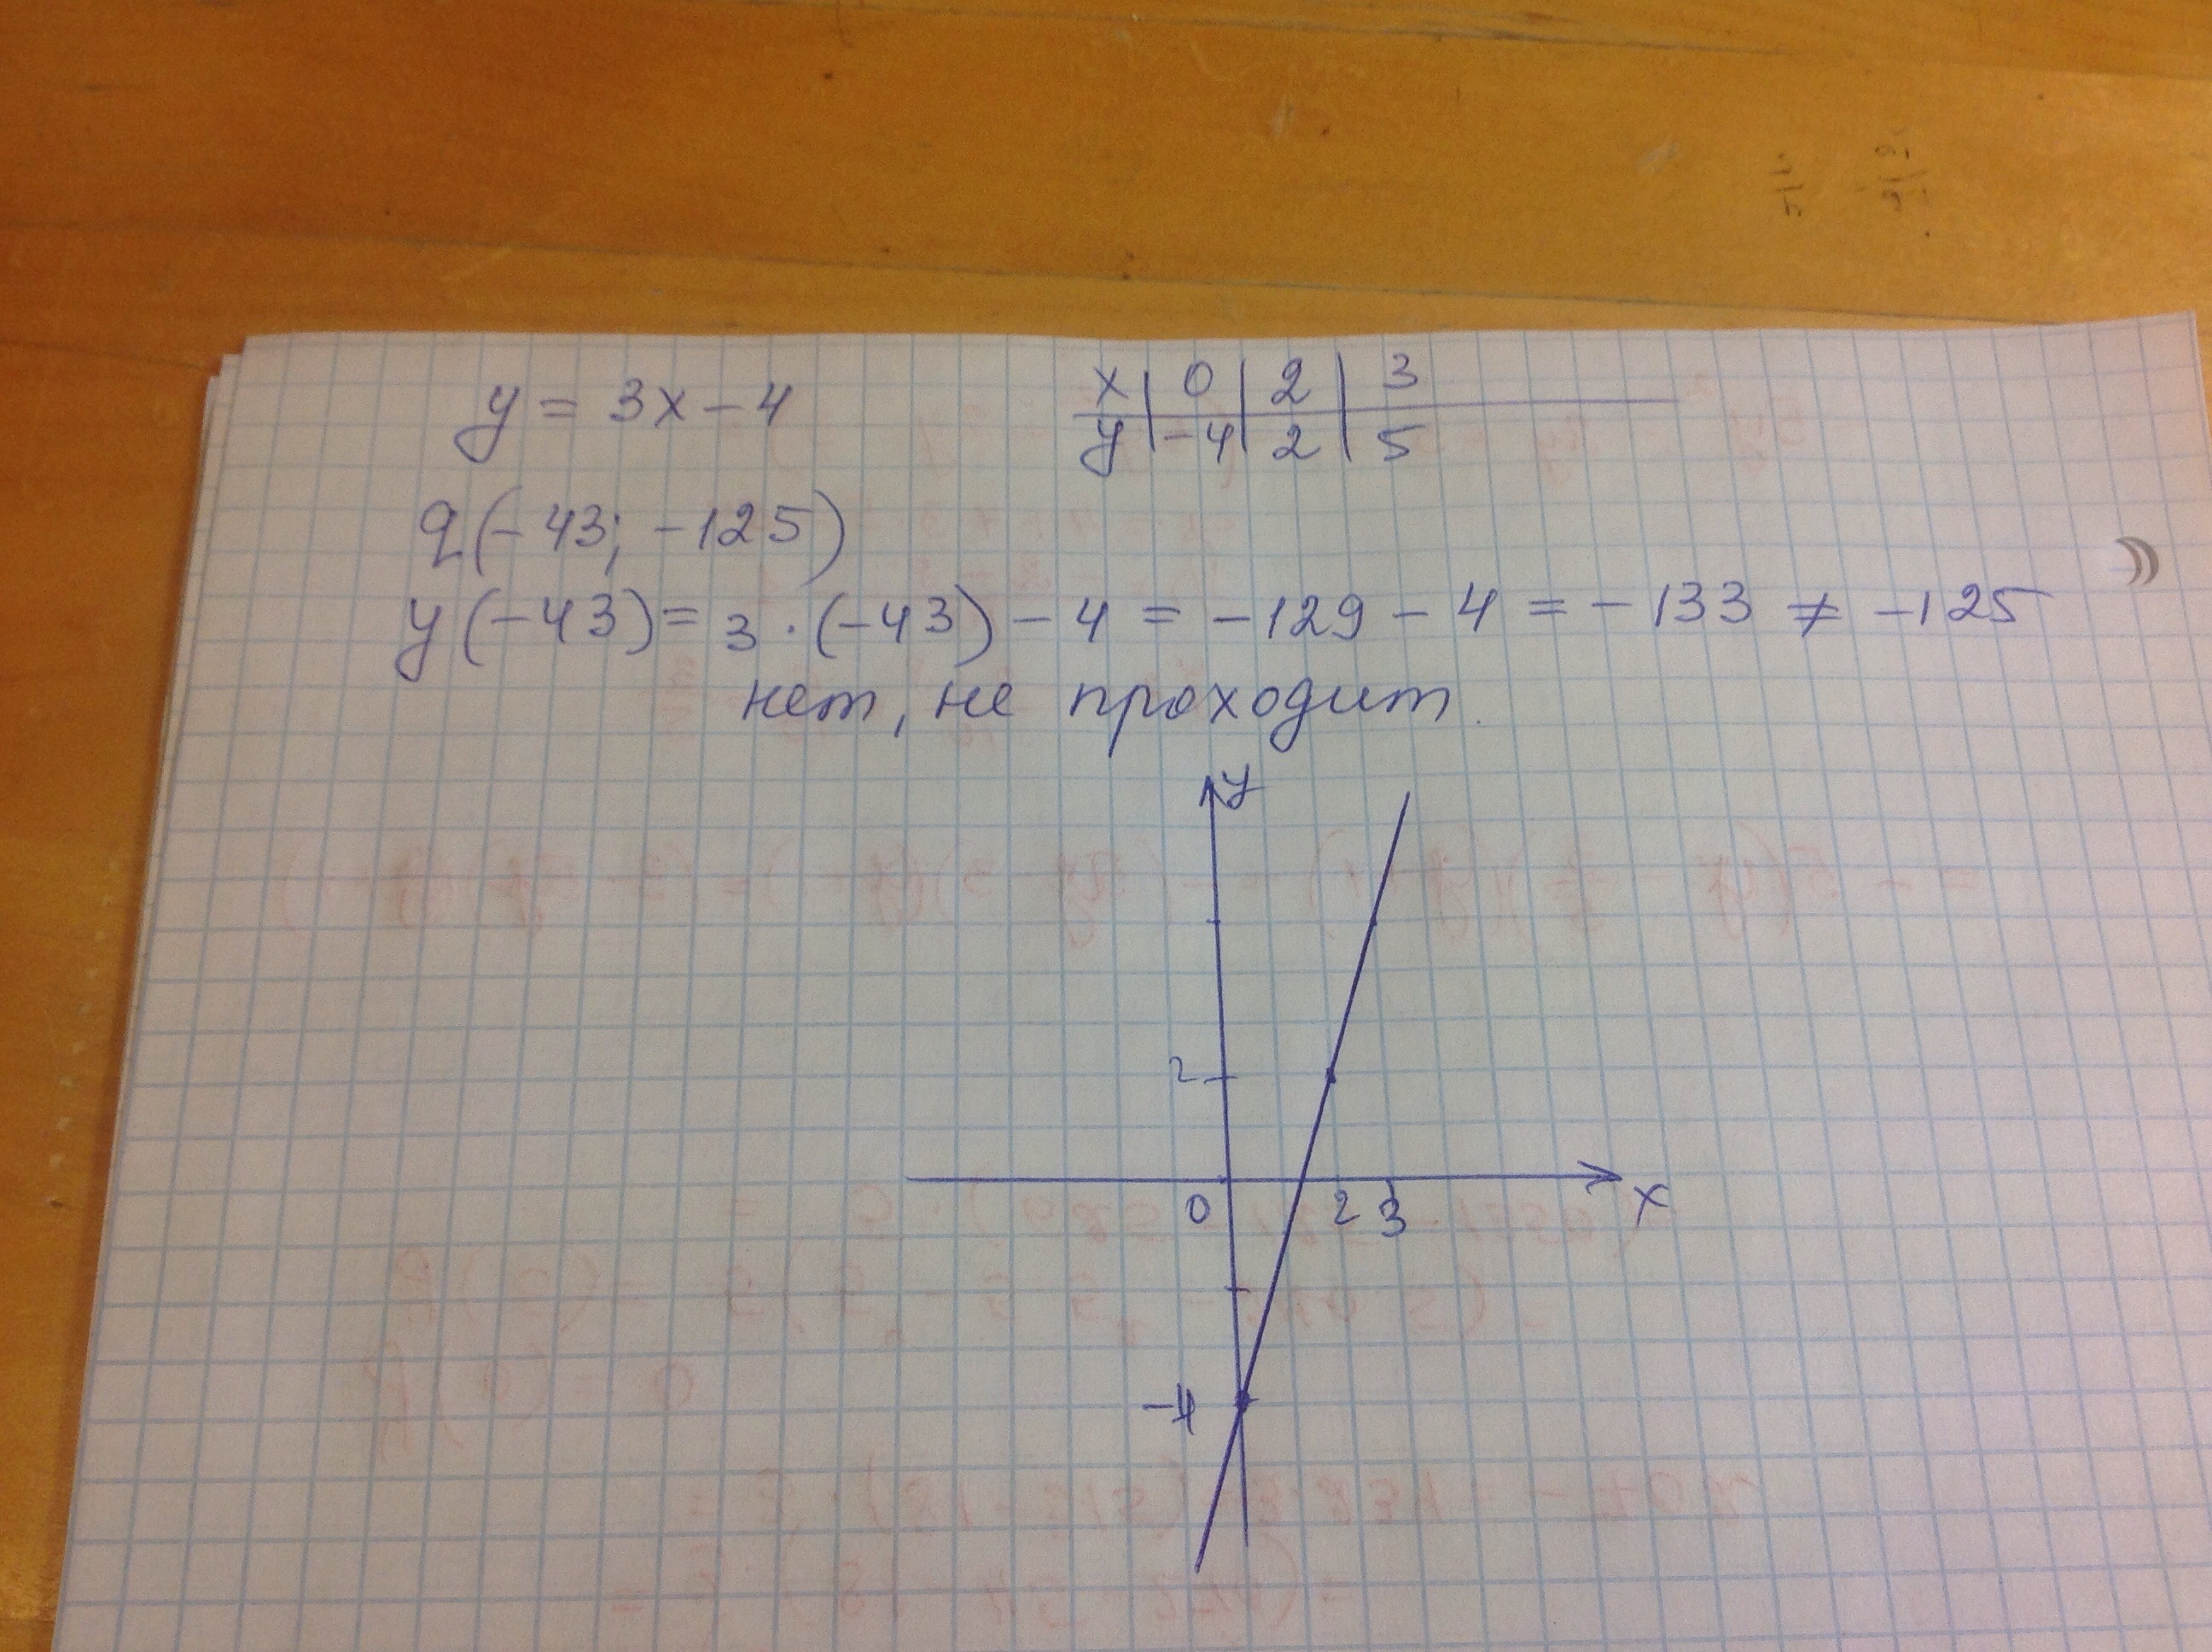 y = 3x - 4
x | 0 | 2 | 3
y | -4 | 2 | 5
q(-43; -125)
y(-43) = 3 · (-43) - 4 = -129 - 4 = -133 ≠ -125
нет, не проходит.
y
2
0 2 3 x
-4